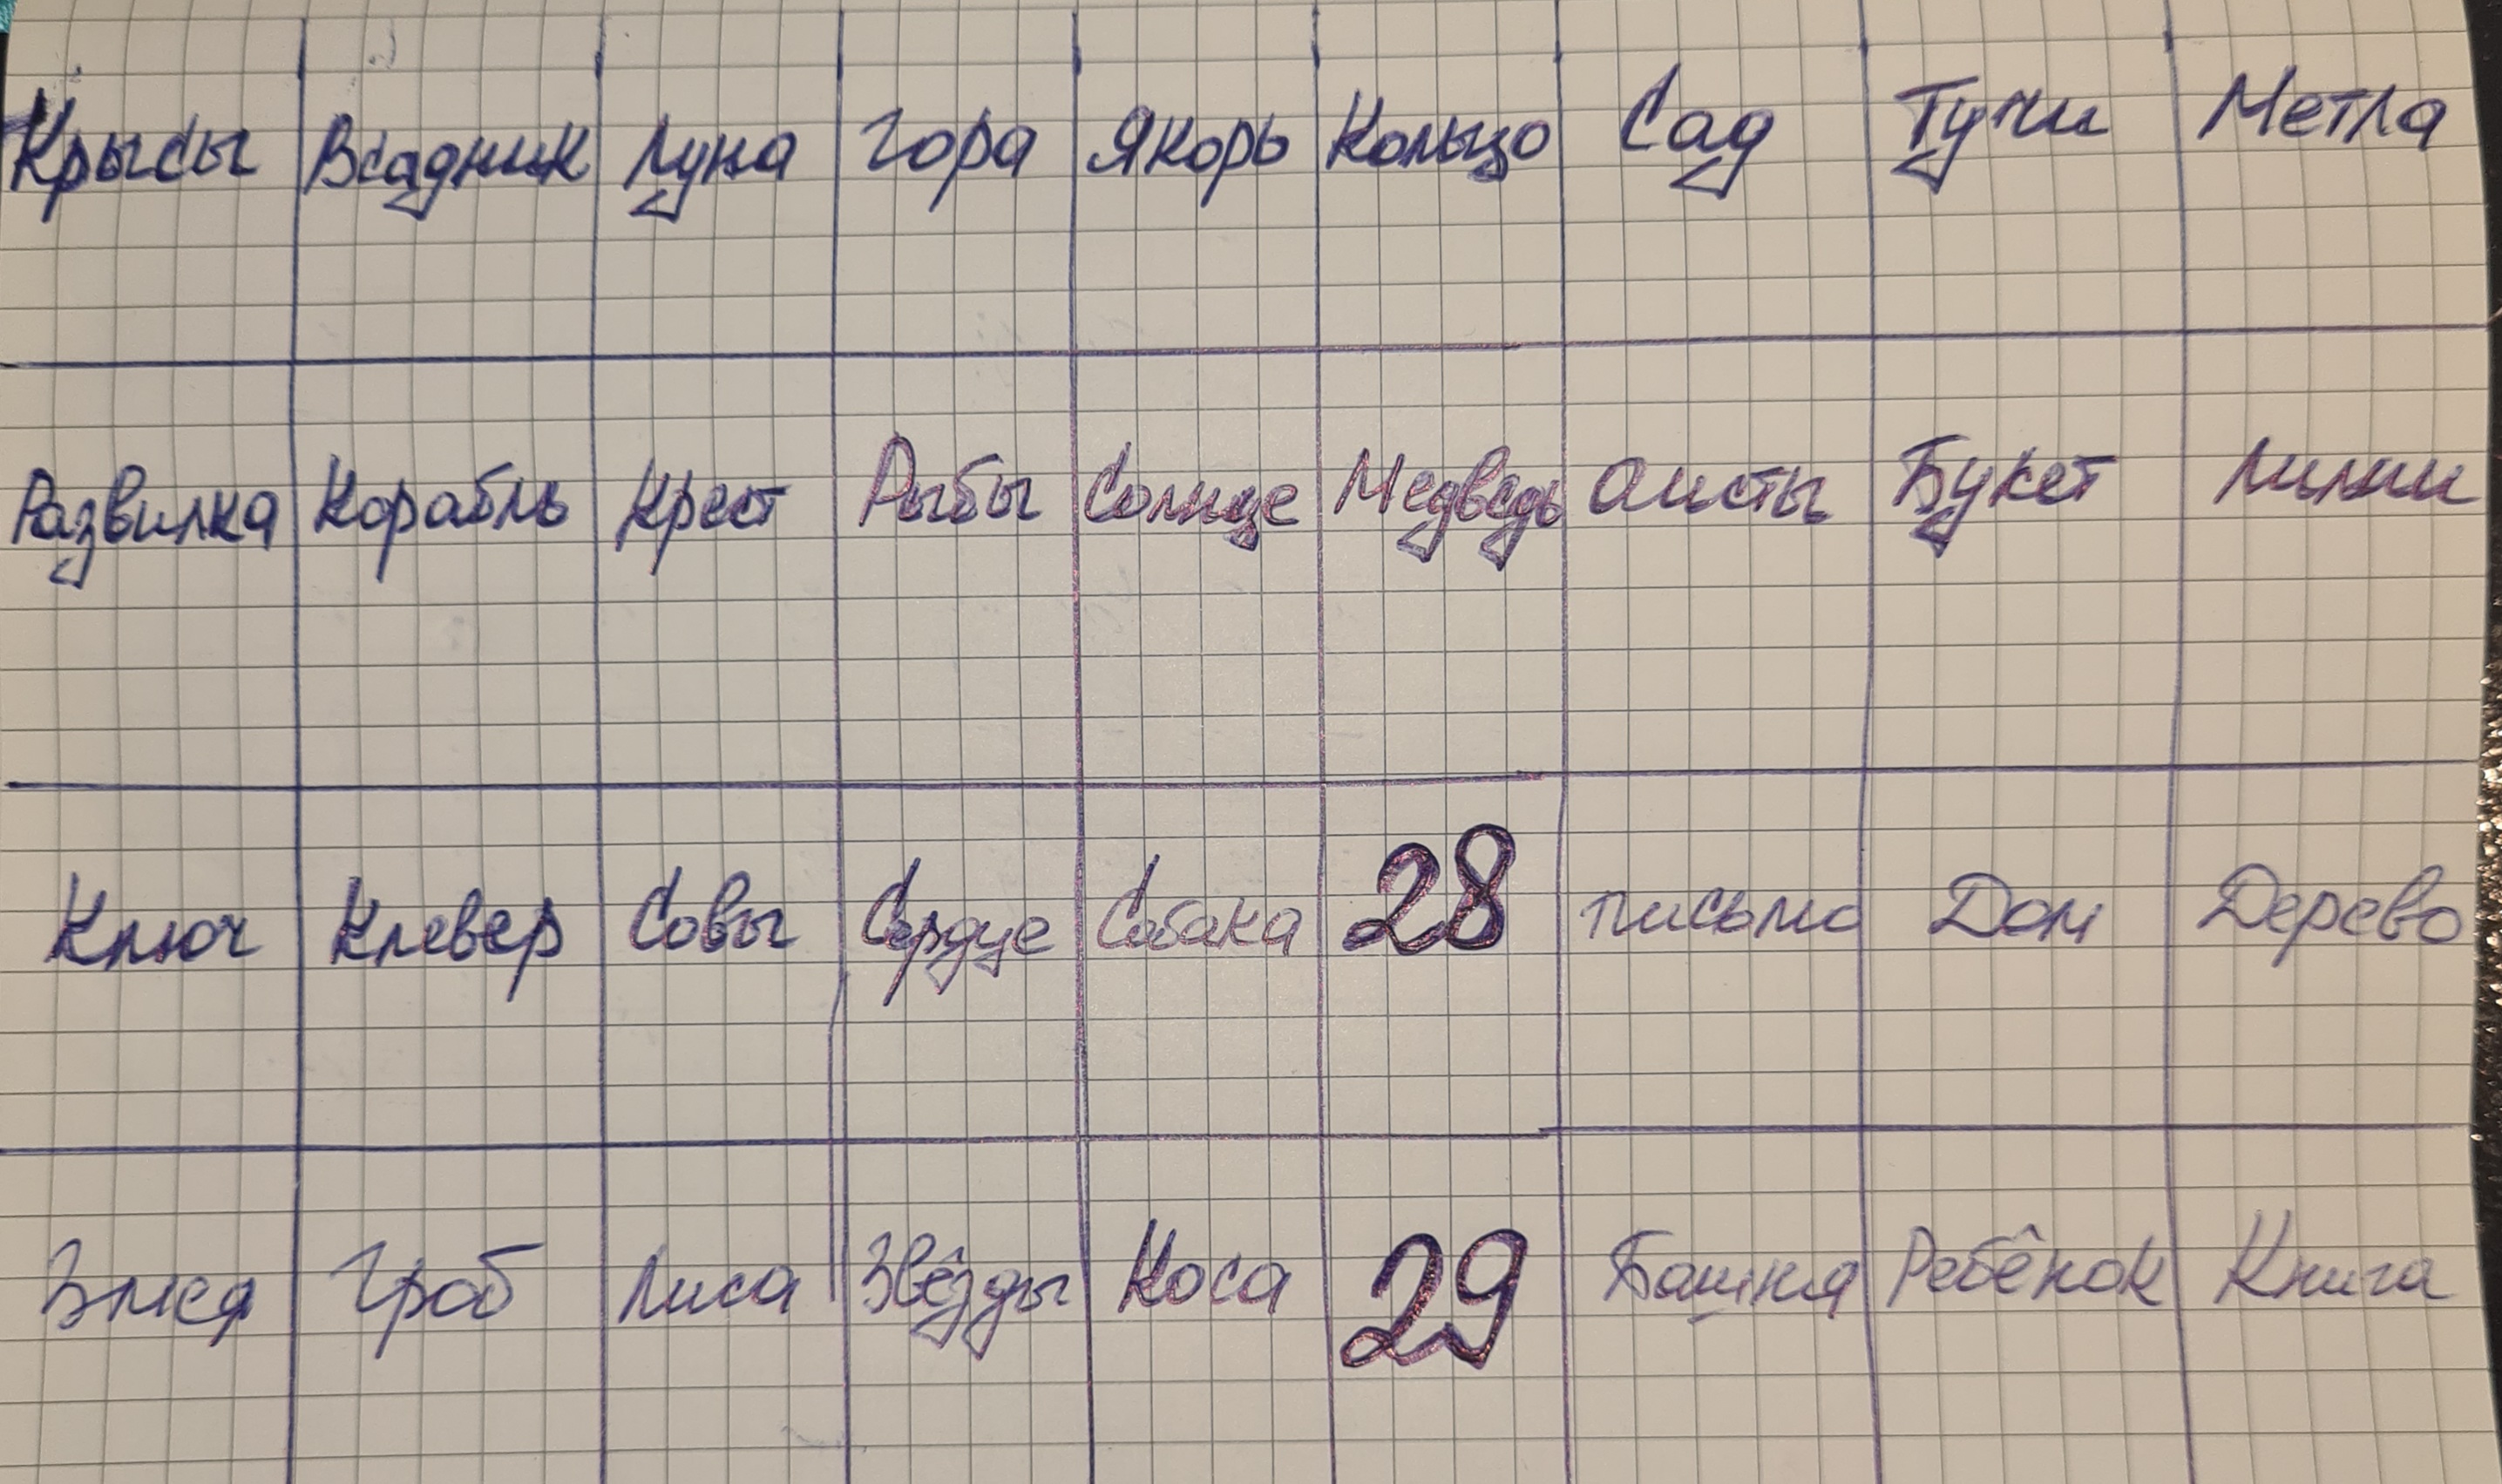 Крысы Всадник Луна Гора Якорь Кольцо Сад Тучи Метла
Развилка Корабль Крест Рыбы Солнце Медведь Аисты Букет Лилии
Ключ Клевер Совы Сердце Собака 28 письмо Дом Дерево
Змея Гроб Лиса Звёзды Коса 29 Башня Ребёнок Книга